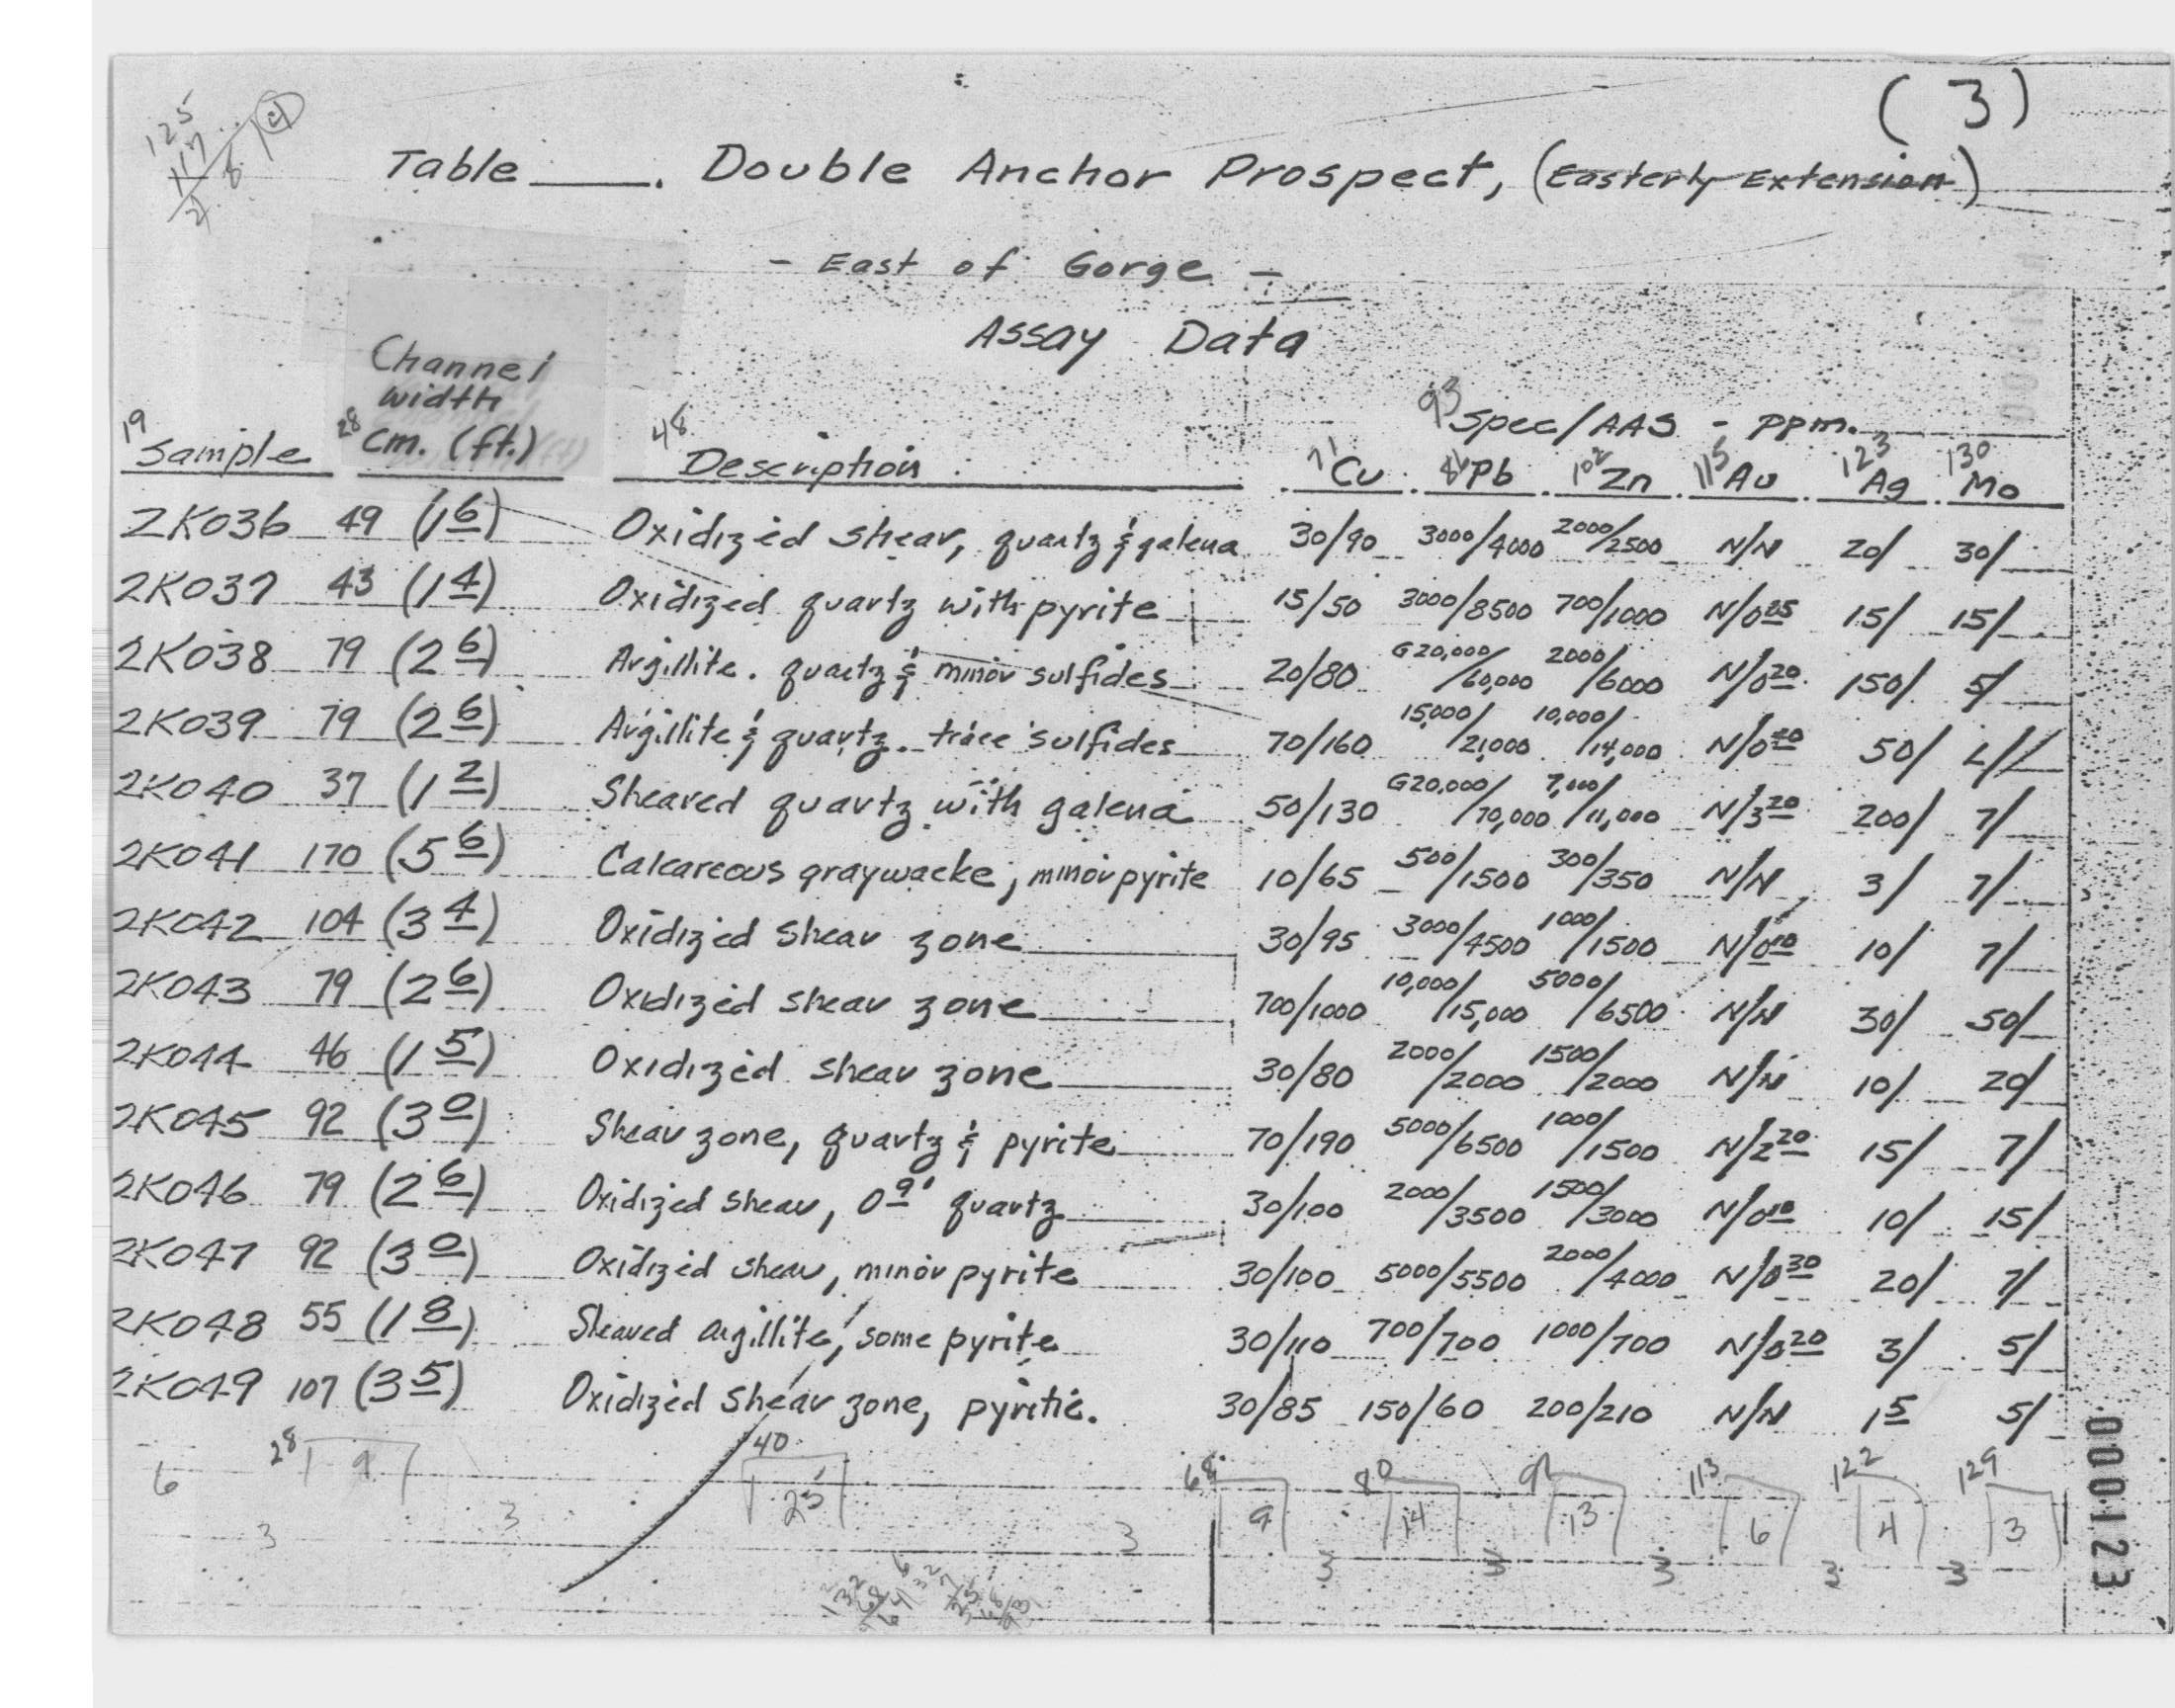 ( 3 )
Table ____. Double Anchor Prospect, (Easterly Extension)
- East of Gorge -
Assay Data
Channel
width
93 Spec/AAS - ppm.
19 Sample 28 cm. (ft.) 48 Description 71 Cu 84 Pb 102 Zn 115 Au 123 Ag 130 Mo
2K036 49 (1 6) Oxidized shear, quartz & galena 30/90 3000/4000 2000/2500 N/N 20/ 30/
2K037 43 (1 4) Oxidized quartz with pyrite 15/50 3000/8500 700/1000 N/0 25 15/ 15/
2K038 79 (2 6) Argillite. quartz & minor sulfides 20/80 G20,000/60,000 2000/6000 N/0 20 150/ 5/
2K039 79 (2 6) Argillite & quartz. trace sulfides 70/160 15,000/21,000 10,000/14,000 N/0 20 50/ L/
2K040 37 (1 2) Sheared quartz with galena 50/130 G20,000/70,000 7,000/11,000 N/3 20 200/ 7/
2K041 170 (5 6) Calcareous graywacke, minor pyrite 10/65 500/1500 300/350 N/N 3/ 7/
2K042 104 (3 4) Oxidized shear zone 30/95 3000/4500 1000/1500 N/0 10 10/ 7/
2K043 79 (2 6) Oxidized shear zone 700/1000 10,000/15,000 5000/6500 N/N 30/ 50/
2K044 46 (1 5) Oxidized shear zone 30/80 2000/2000 1500/2000 N/N 10/ 20/
2K045 92 (3 0) Shear zone, quartz & pyrite 70/190 5000/6500 1000/1500 N/2 20 15/ 7/
2K046 79 (2 6) Oxidized shear, 0 9' quartz 30/100 2000/3500 1500/3000 N/0 10 10/ 15/
2K047 92 (3 0) Oxidized shear, minor pyrite 30/100 5000/5500 2000/4000 N/0 30 20/ 7/
2K048 55 (1 8) Sheared argillite, some pyrite 30/110 700/700 1000/700 N/0 20 3/ 5/
2K049 107 (3 5) Oxidized shear zone, pyritic. 30/85 150/60 200/210 N/N 1 5 5/
28 40 68 80 92 113 122 129
6 9 25 9 14 13 6 4 3
3 3 3 3 3 3 3 3
000123